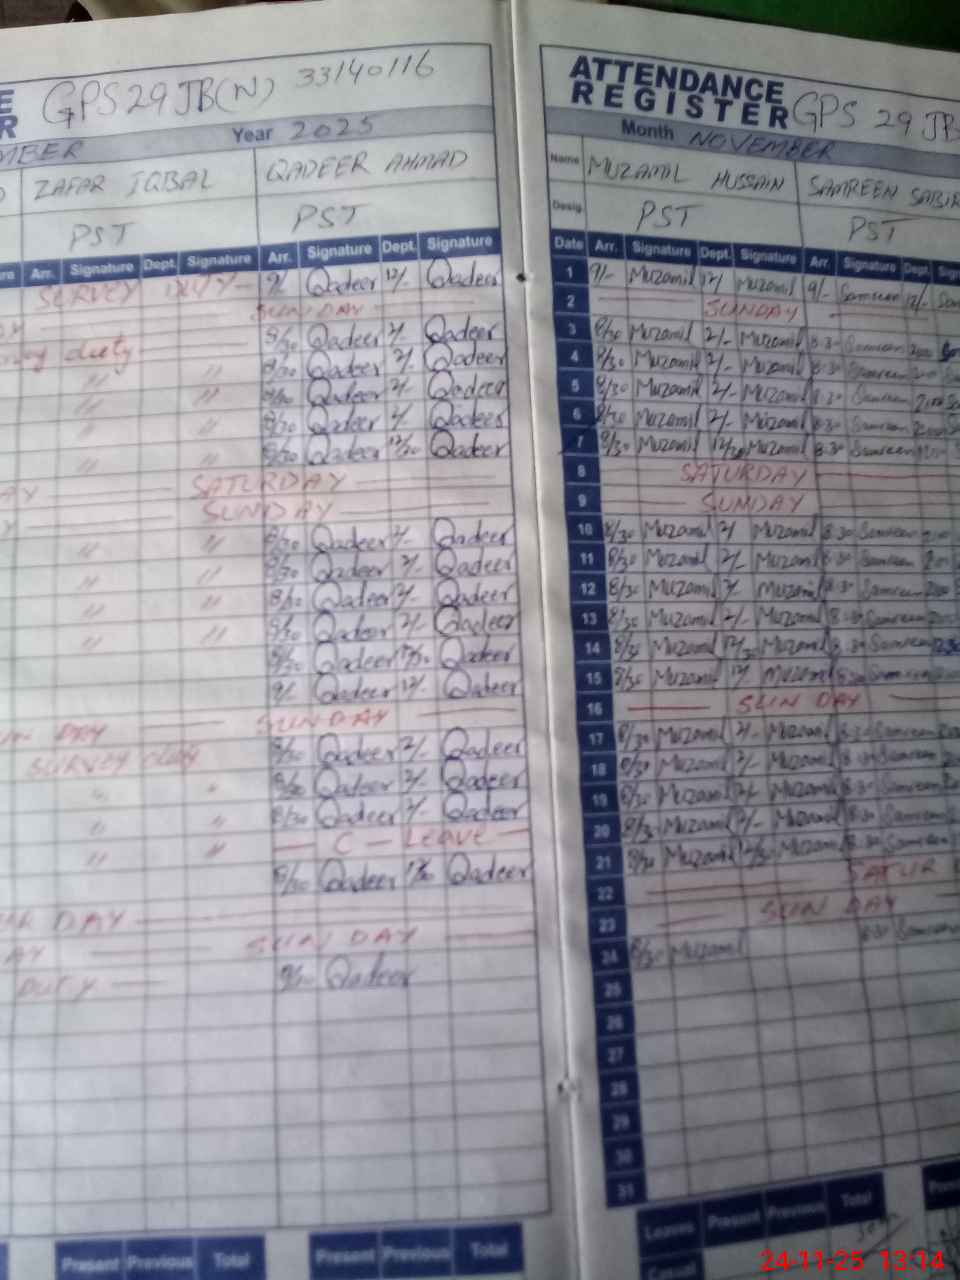 GPS 29 JB(N) 33140116
Year 2025
ZAFAR IQBAL QADEER AHMAD
PST PST
Arr. Signature Dept. Signature Arr. Signature Dept. Signature
SURVEY DUTY 9/- Qadeer 12/- Qadeer
SUNDAY
duty 8/30 Qadeer 2/- Qadeer
" " 8/30 Qadeer 2/- Qadeer
" " 8/30 Qadeer 2/- Qadeer
" " 8/30 Qadeer 2/- Qadeer
" " 8/30 Qadeer 12/30 Qadeer
SATURDAY
SUNDAY
" " 8/30 Qadeer 2/- Qadeer
" " 8/30 Qadeer 2/- Qadeer
" " 8/30 Qadeer 2/- Qadeer
" " 8/30 Qadeer 2/- Qadeer
" " 8/30 Qadeer 12/30 Qadeer
9/- Qadeer 12/- Qadeer
DAY SUNDAY
SURVEY duty 8/30 Qadeer 2/- Qadeer
" " 8/30 Qadeer 2/- Qadeer
" " 8/30 Qadeer 2/- Qadeer
" " C - LEAVE
8/30 Qadeer 12/30 Qadeer
DAY
SUN DAY
DUTY 8/30 Qadeer
Present Previous Total Present Previous Total
ATTENDANCE
REGISTER GPS 29 JB
Month NOVEMBER
Name MUZAMIL HUSSAIN SAMREEN SABIR
Desig. PST PST
Date Arr. Signature Dept. Signature Arr. Signature Dept.
1 9/- Muzamil 12/ Muzamil 9/- Samreen 12/-
2 SUNDAY
3 8/30 Muzamil 2/- Muzamil 8:30 Samreen 2:00
4 8/30 Muzamil 2/- Muzamil 8:30 Samreen 2:00
5 8/30 Muzamil 2/- Muzamil 8:30 Samreen 2:00
6 8/30 Muzamil 2/- Muzamil 8:30 Samreen 2:00
7 8/30 Muzamil 12/30 Muzamil 8:30 Samreen
8 SATURDAY
9 SUNDAY
10 8/30 Muzamil 2/ Muzamil 8:30 Samreen 2:00
11 8/30 Muzamil 2/- Muzamil 8:30 Samreen 2:00
12 8/30 Muzamil 2/ Muzamil 8:30 Samreen 2:00
13 8/30 Muzamil 2/- Muzamil 8:30 Samreen
14 8/30 Muzamil 12/30 Muzamil 8:30 Samreen 12:30
15 8/30 Muzamil 12/ Muzamil 8:30 Samreen
16 SUN DAY
17 8/30 Muzamil 2/- Muzamil 8:30 Samreen
18 8/30 Muzamil 2/- Muzamil 8:30 Samreen
19 8/30 Muzamil 2/- Muzamil 8:30 Samreen
20 8/30 Muzamil 2/- Muzamil 8:30 Samreen
21 8/30 Muzamil 12/30 Muzamil 8:30 Samreen
22 SATUR
23 SUN DAY
24 8/30 Muzamil 8:30 Samreen
25
26
27
28
29
30
31
Leaves Present Previous Total
Casual
24-11-25 13:14